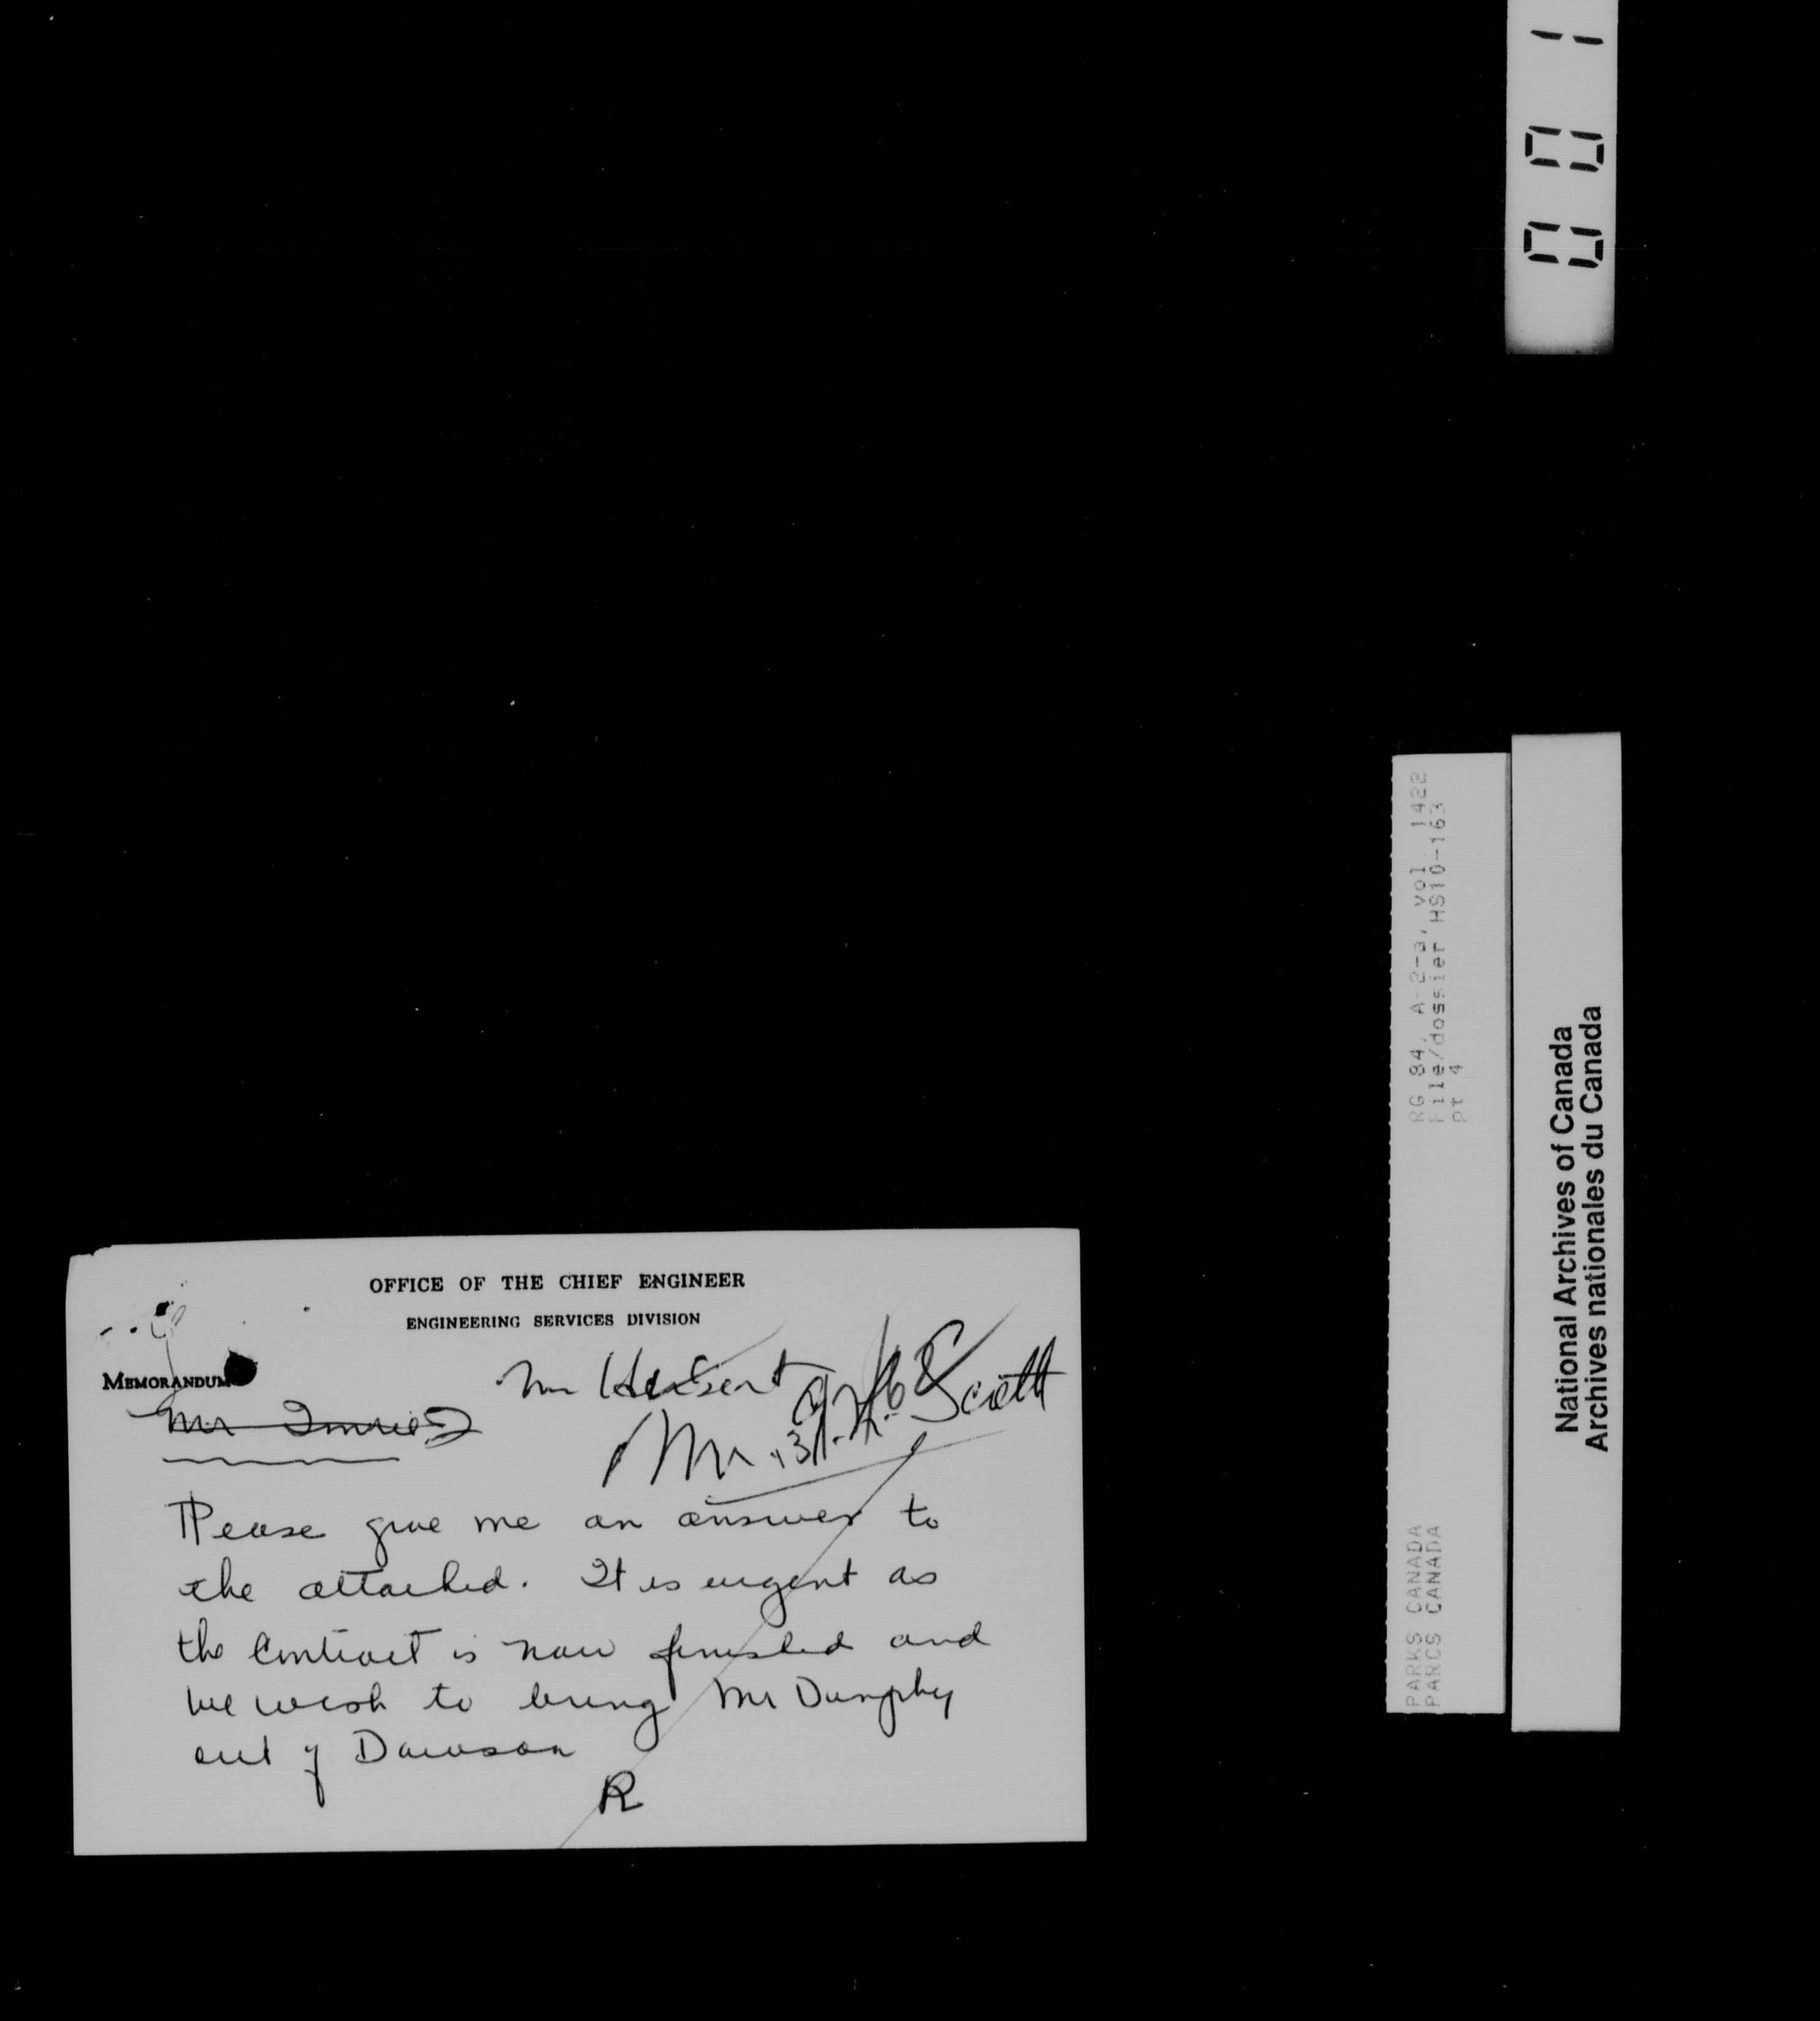 001
National Archives of Canada
Archives nationales du Canada
RG 84, A-2-a, vol. 1422
File/dossier HS10-163
pt 4
PARKS CANADA
PARCS CANADA
OFFICE OF THE CHIEF ENGINEER
ENGINEERING SERVICES DIVISION
MEMORANDUM
Mr Herbert
Mr Imrie
Mr. Scott
Please give me an answer to
the attached. It is urgent as
the Contract is now finished and
we wish to bring Mr Dunphy
out of Dawson
R